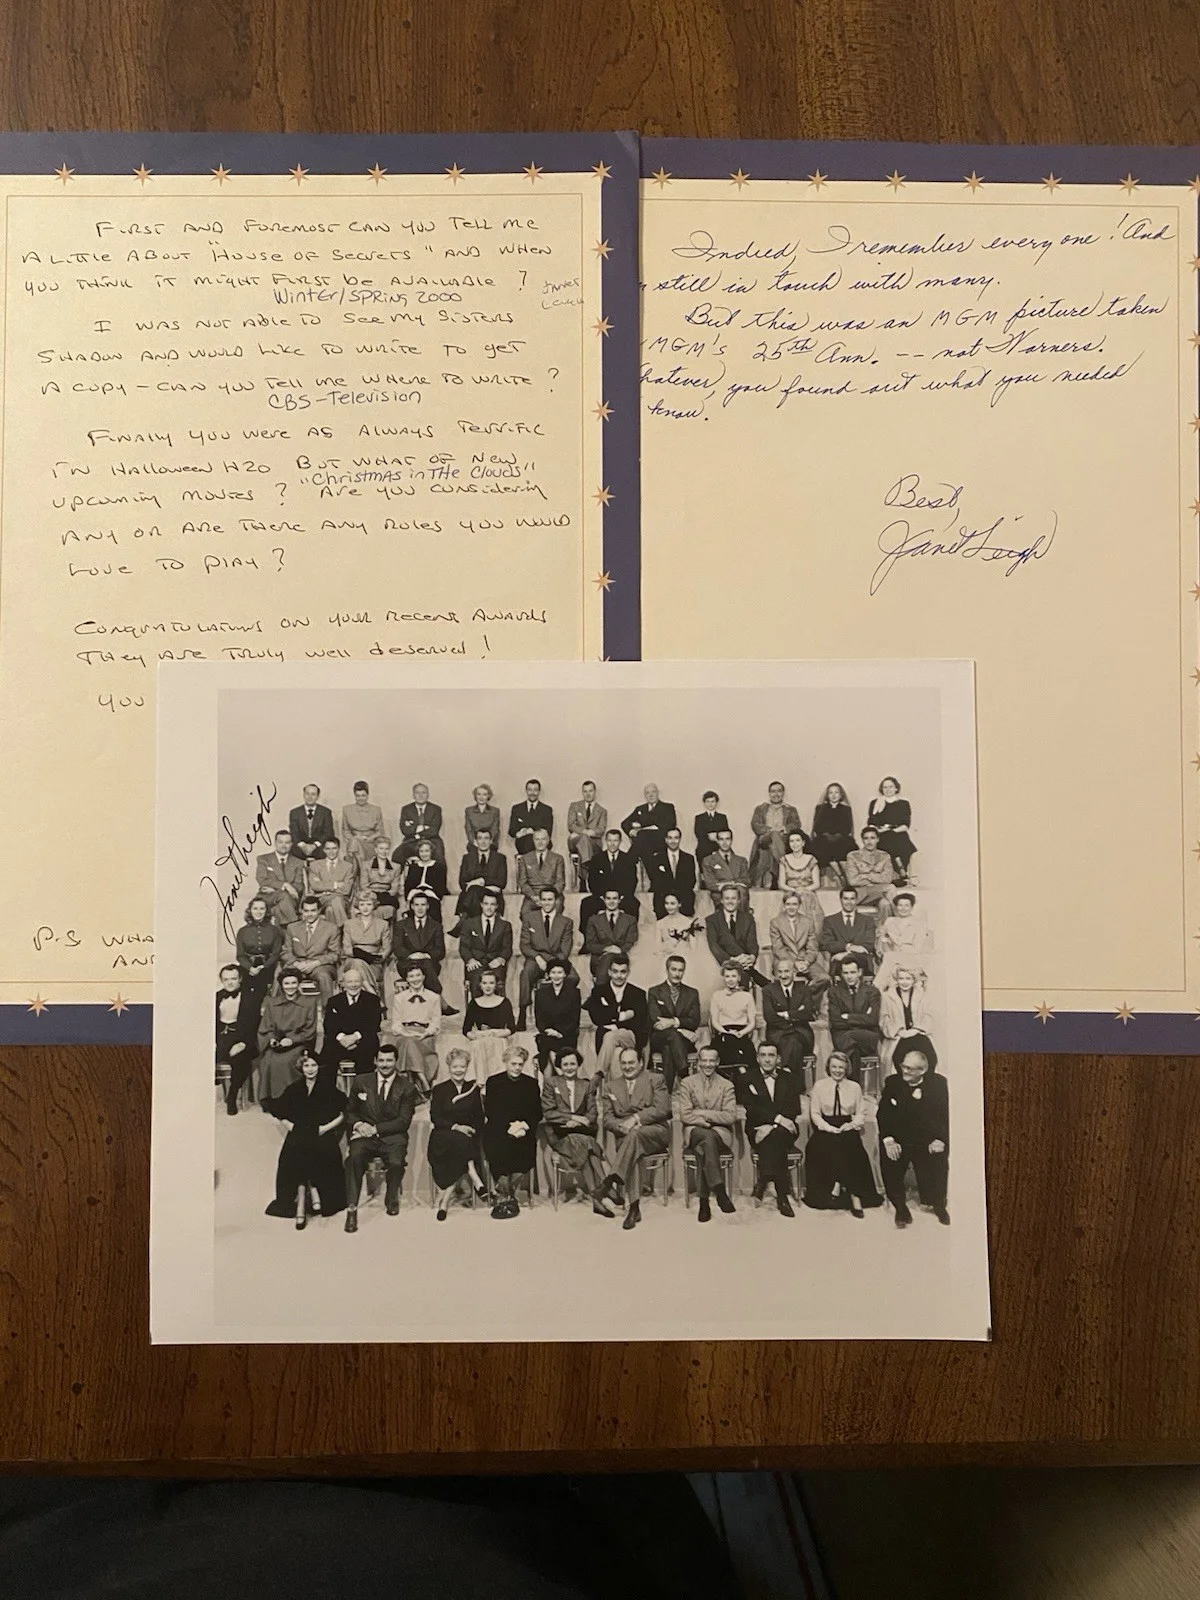 First and foremost can you tell me
a little about "House of Secrets" and when
you think it might first be available?
Winter/Spring 2000
I was not able to see my Sisters
Shadow and would like to write to get
a copy - can you tell me where to write?
CBS-Television
Finally you were as always terrific
in Halloween H20 But what of new
"Christmas in The Clouds"
upcoming movies? Are you considering
any or are there any roles you would
love to play?
Congratulations on your recent awards
they are truly well deserved!
you
P.S wha
an
Indeed, I remember every one! And
still in touch with many.
But this was an MGM picture taken
MGM's 25th Ann. -- not Warners.
hatever, you found out what you needed
know.
Best,
Janet Leigh
Janet Leigh